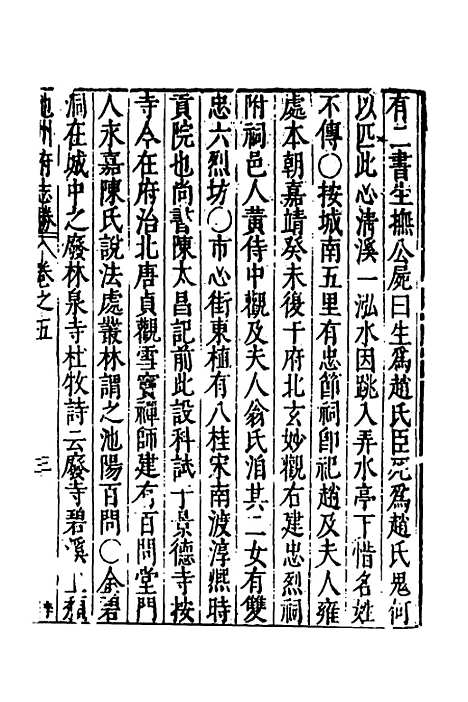 有二書生撫公屍曰生爲趙氏臣死爲趙氏鬼何
以匹此心淸溪一泓水因跳入弄水亭下惜名姓
不傳〇按城南五里有忠節祠卽祀趙及夫人雍
處本朝嘉靖癸未後于府北玄妙觀右建忠烈祠
附祠邑人黃侍中觀及夫人翁氏洎其二女有雙
忠六烈坊〇市心街東植有八桂宋南渡淳熙時
貢院也尚書陳太昌記前此設科試于景德寺按
寺今在府治北唐貞觀雪竇禪師建有百問堂門
人永嘉陳氏說法處叢林謂之池陽百問〇金碧
洞在城中之廢林泉寺杜牧詩云廢寺碧溪上頹
池州府志勝 卷之五 三